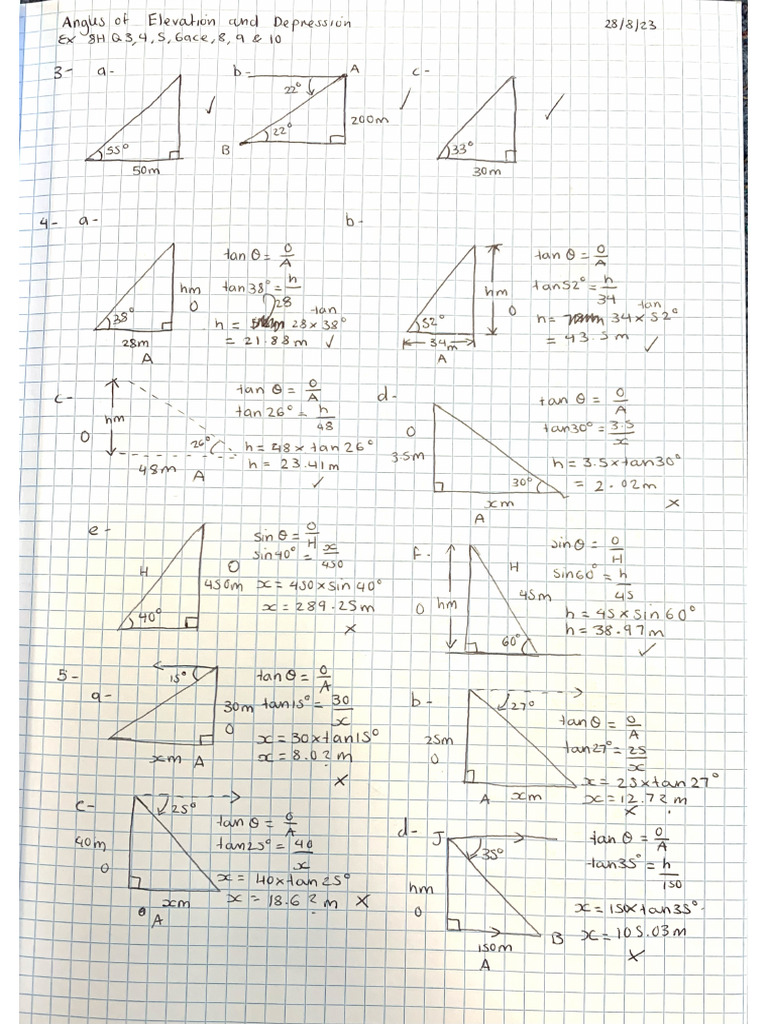 Angus of Elevation and Depression 28/8/23
Ex 8H Q3, 4, 5, 6ace, 8, 9 & 10
3- a-
55°
50m
✓
b-
A
22°
22°
B
200m
✓
c-
33°
30m
✓
4- a-
38°
28m
A
hm
O
tan θ = O/A
tan38° = h/28
tan
h = 28 x 38°
= 21.88m ✓
b-
52°
34m
A
hm
O
tan θ = O/A
tan52° = h/34
tan
h = 34 x 52°
= 43.5m ✓
c-
hm
O
26°
48m A
tan θ = O/A
tan26° = h/48
h = 48 x tan26°
h = 23.41m
✓
d-
O
3.5m
30°
xm
A
tan θ = O/A
tan30° = 3.5/x
h = 3.5xtan30°
= 2.02m
x
e-
H
40°
O
450m
sin θ = O/H
sin40° = x/450
x = 450xsin40°
x = 289.25m
x
f.
O hm
H
45m
60°
sinθ = O/H
sin60° = h/45
h = 45xsin60°
h = 38.97m
✓
5-
a-
15°
30m
O
xm A
tanθ = O/A
tan15° = 30/x
x = 30xtan15°
x = 8.0?m
x
b-
27°
25m
O
A xm
tanθ = O/A
tan27° = 25/x
x = 25xtan27°
x = 12.72m
x
c-
25°
40m
O
xm
A
tanθ = O/A
tan25° = 40/x
x = 40xtan25°
x = 18.6?m x
d- J
35°
hm
O
150m
A
B
tan θ = O/A
tan35° = h/150
x = 150xtan35°
x = 105.03m
x